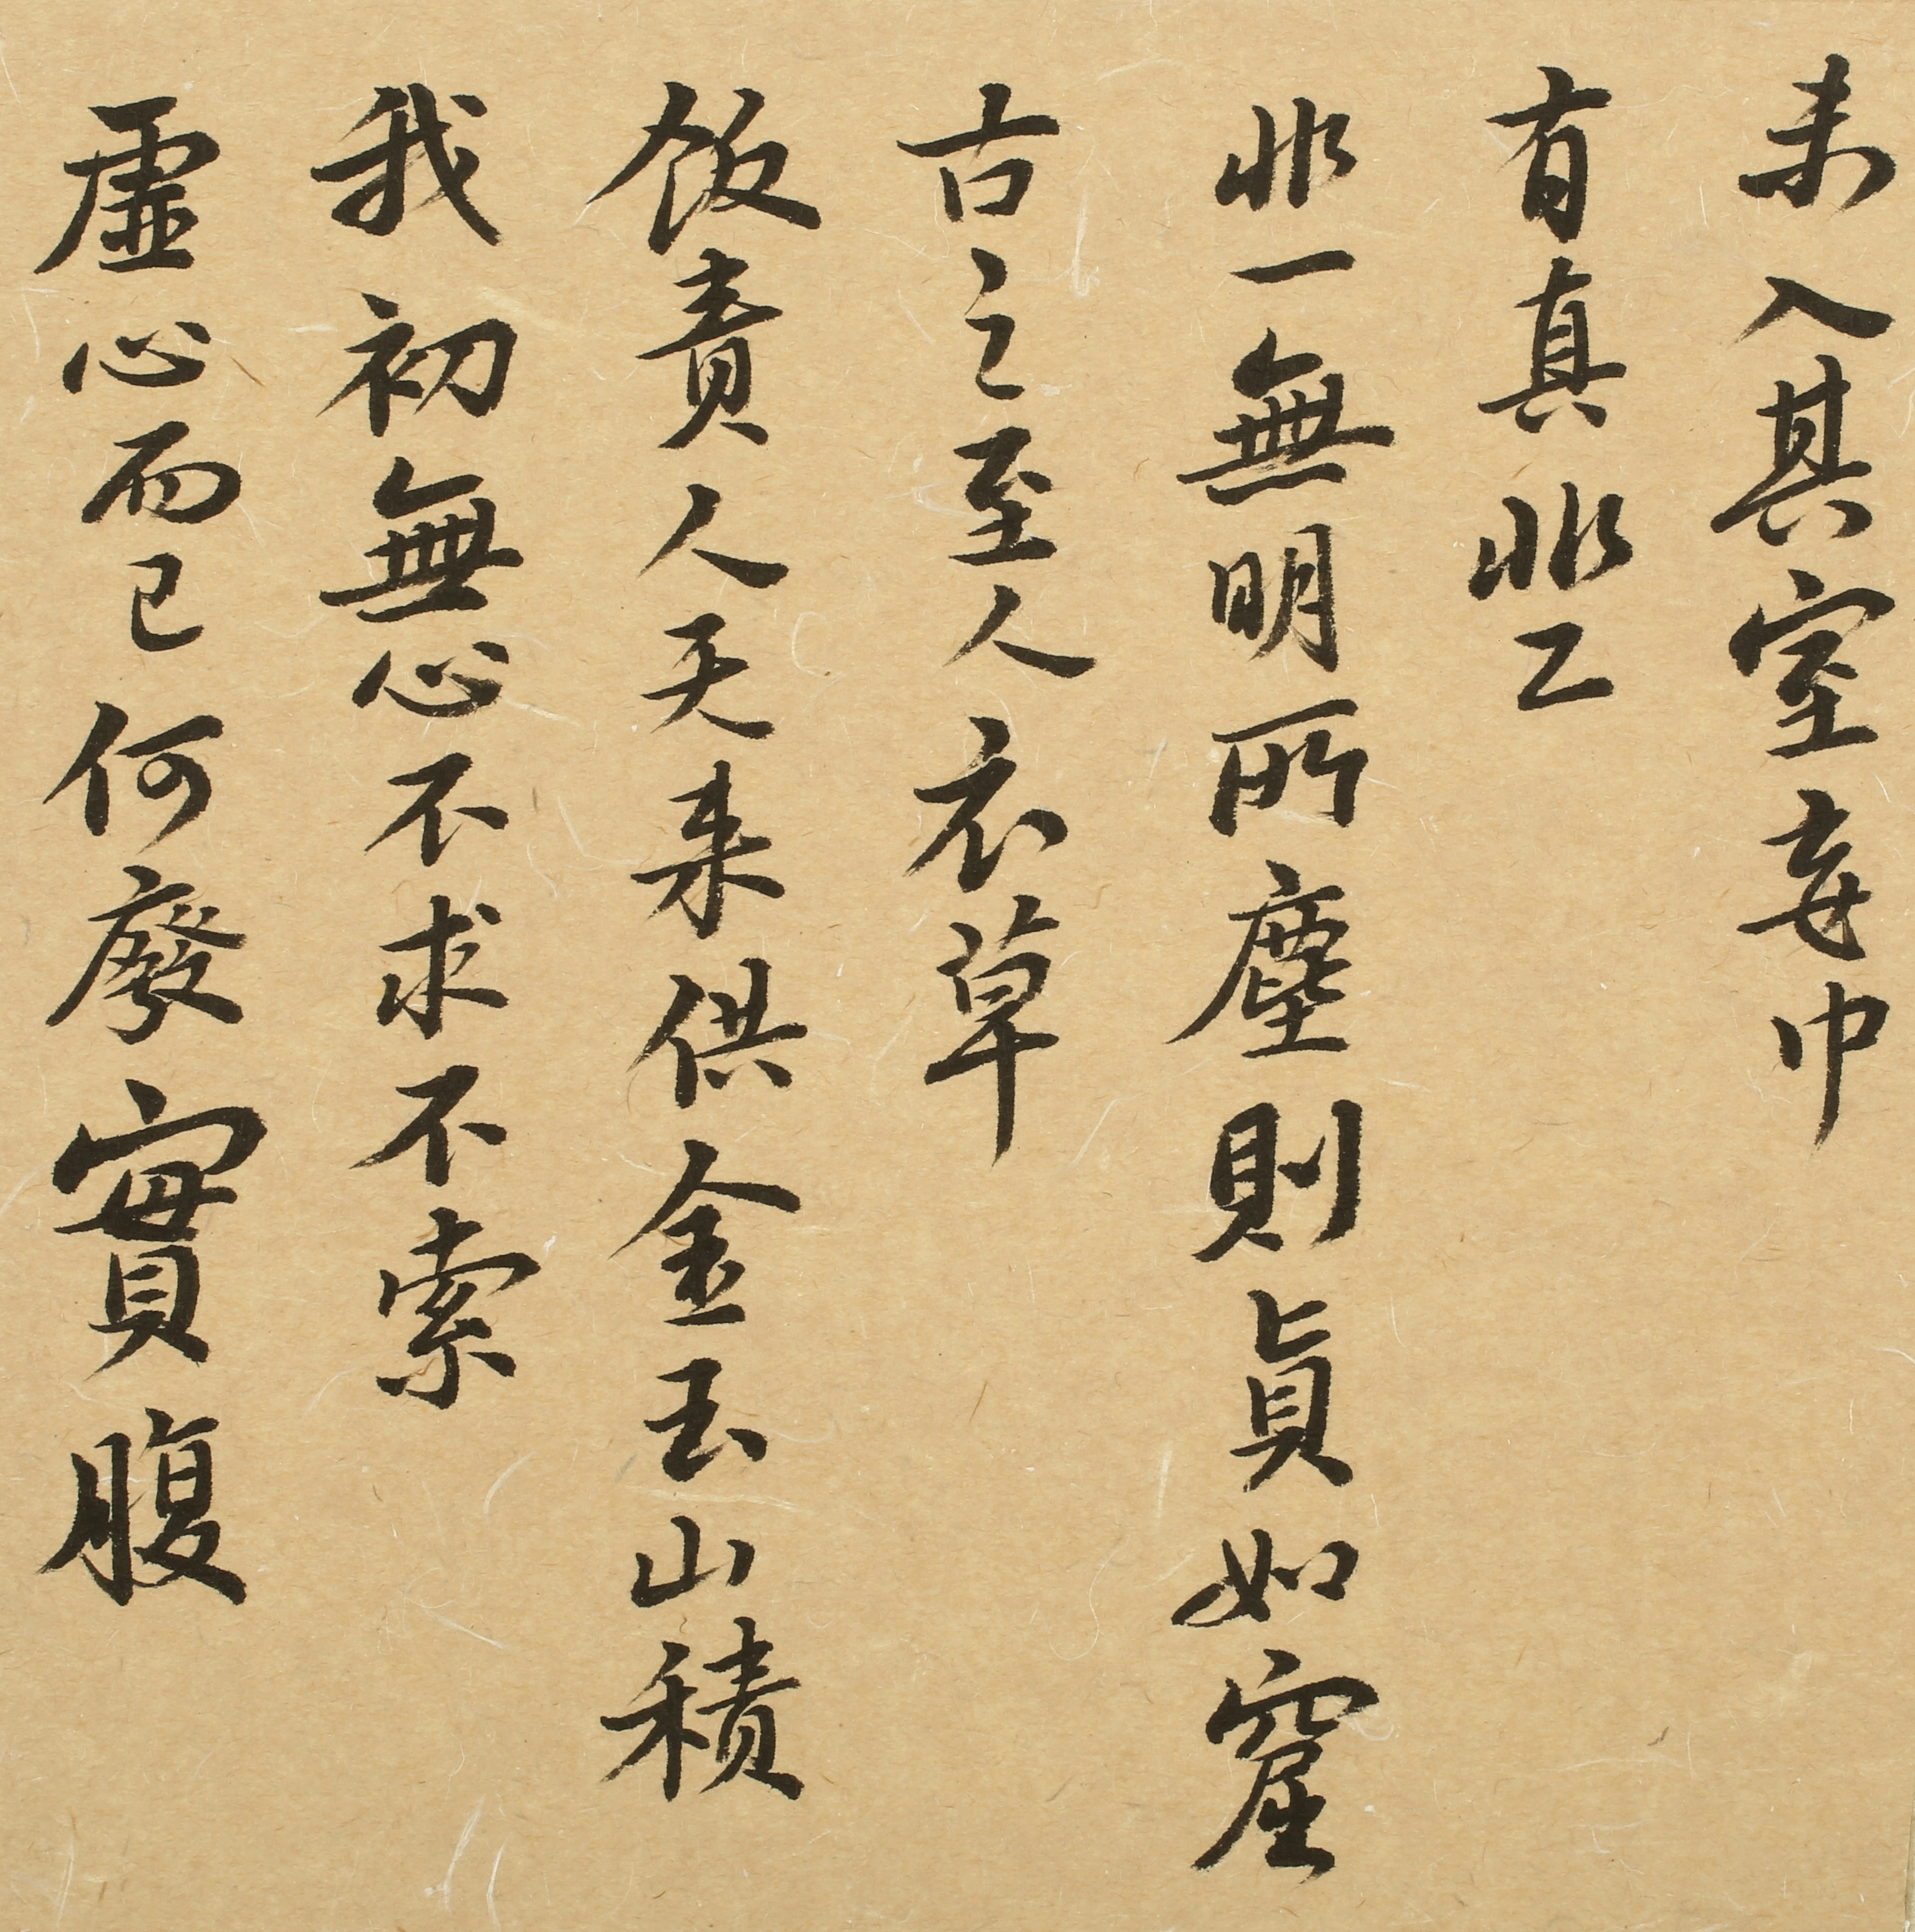 未入其室妄中
有真非二
非一無明所塵則眞如窟
古之至人衣草
飯責人天来供金玉山積
我初無心不求不索
虛心而已何廢實腹